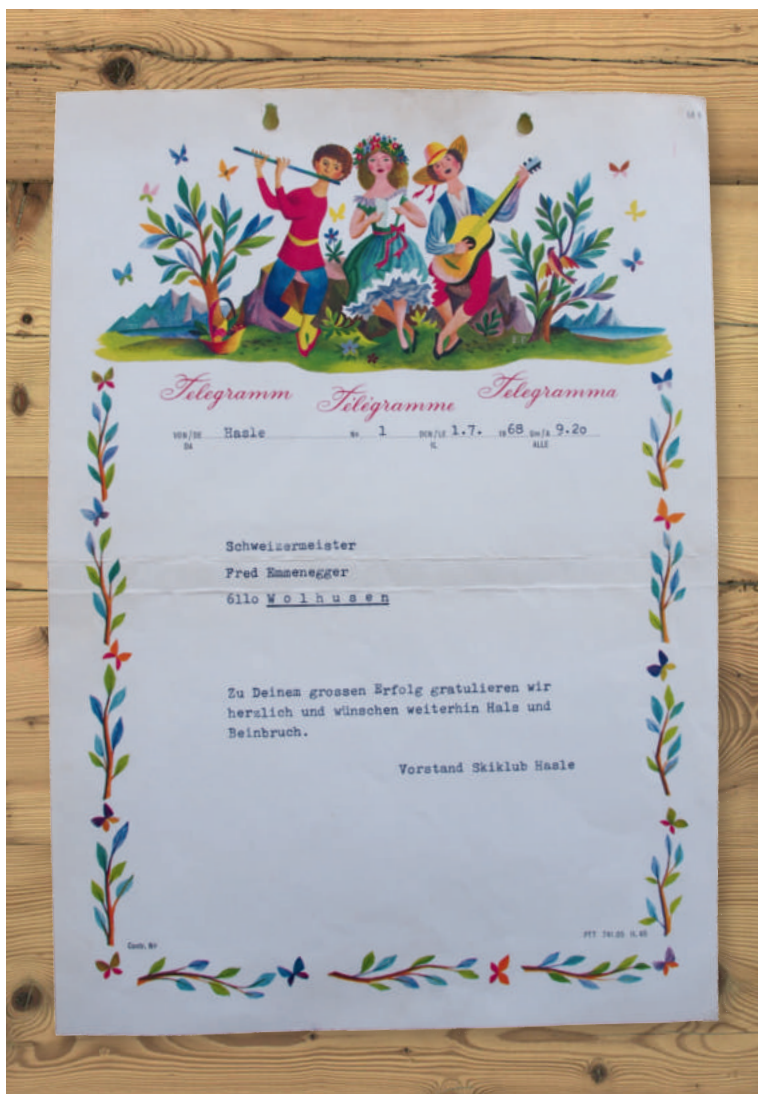 Telegramm Télégramme Telegramma
VON/DE Hasle Nr 1 DEN/LE 1.7. 19 68 UM/A 9.2o
DA IL ALLE
Schweizermeister
Fred Emmenegger
611o W o l h u s e n
Zu Deinem grossen Erfolg gratulieren wir
herzlich und wünschen weiterhin Hals und
Beinbruch.
Vorstand Skiklub Hasle
PTT 741.05
Contr. Nr